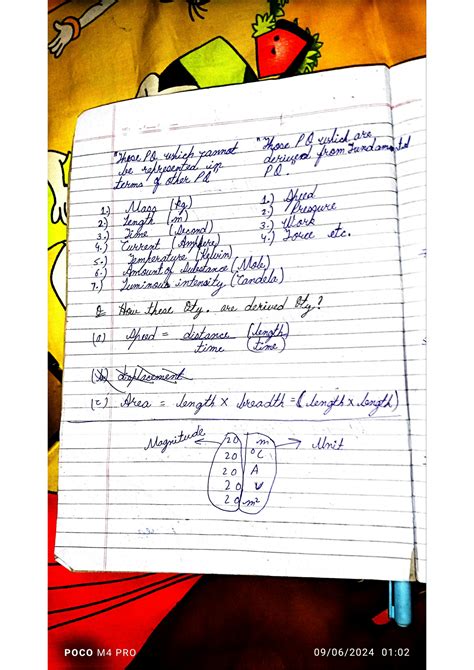 "Those P.Q. which cannot
be represented in
terms of other P.Q
"Those P.Q. which are
derived from Fundamental
P.Q.
1.) Mass (kg)
2.) Length (m)
3.) Time (Second)
4.) Current (Ampere)
5.) Temperature (Kelvin)
6.) Amount of Substance (Mole)
7.) Luminous intensity (Candela)
1.) Speed
2.) Pressure
3.) Work
4.) Force etc.
Q How these Qty. are derived Qty?
(a) Speed = distance (length)
time (time)
(b) displacement
(c) Area = length × breadth = (length × length)
Magnitude ← 20 m → Unit
20 °C
20 A
20 V
20 m²
POCO M4 PRO 09/06/2024 01:02